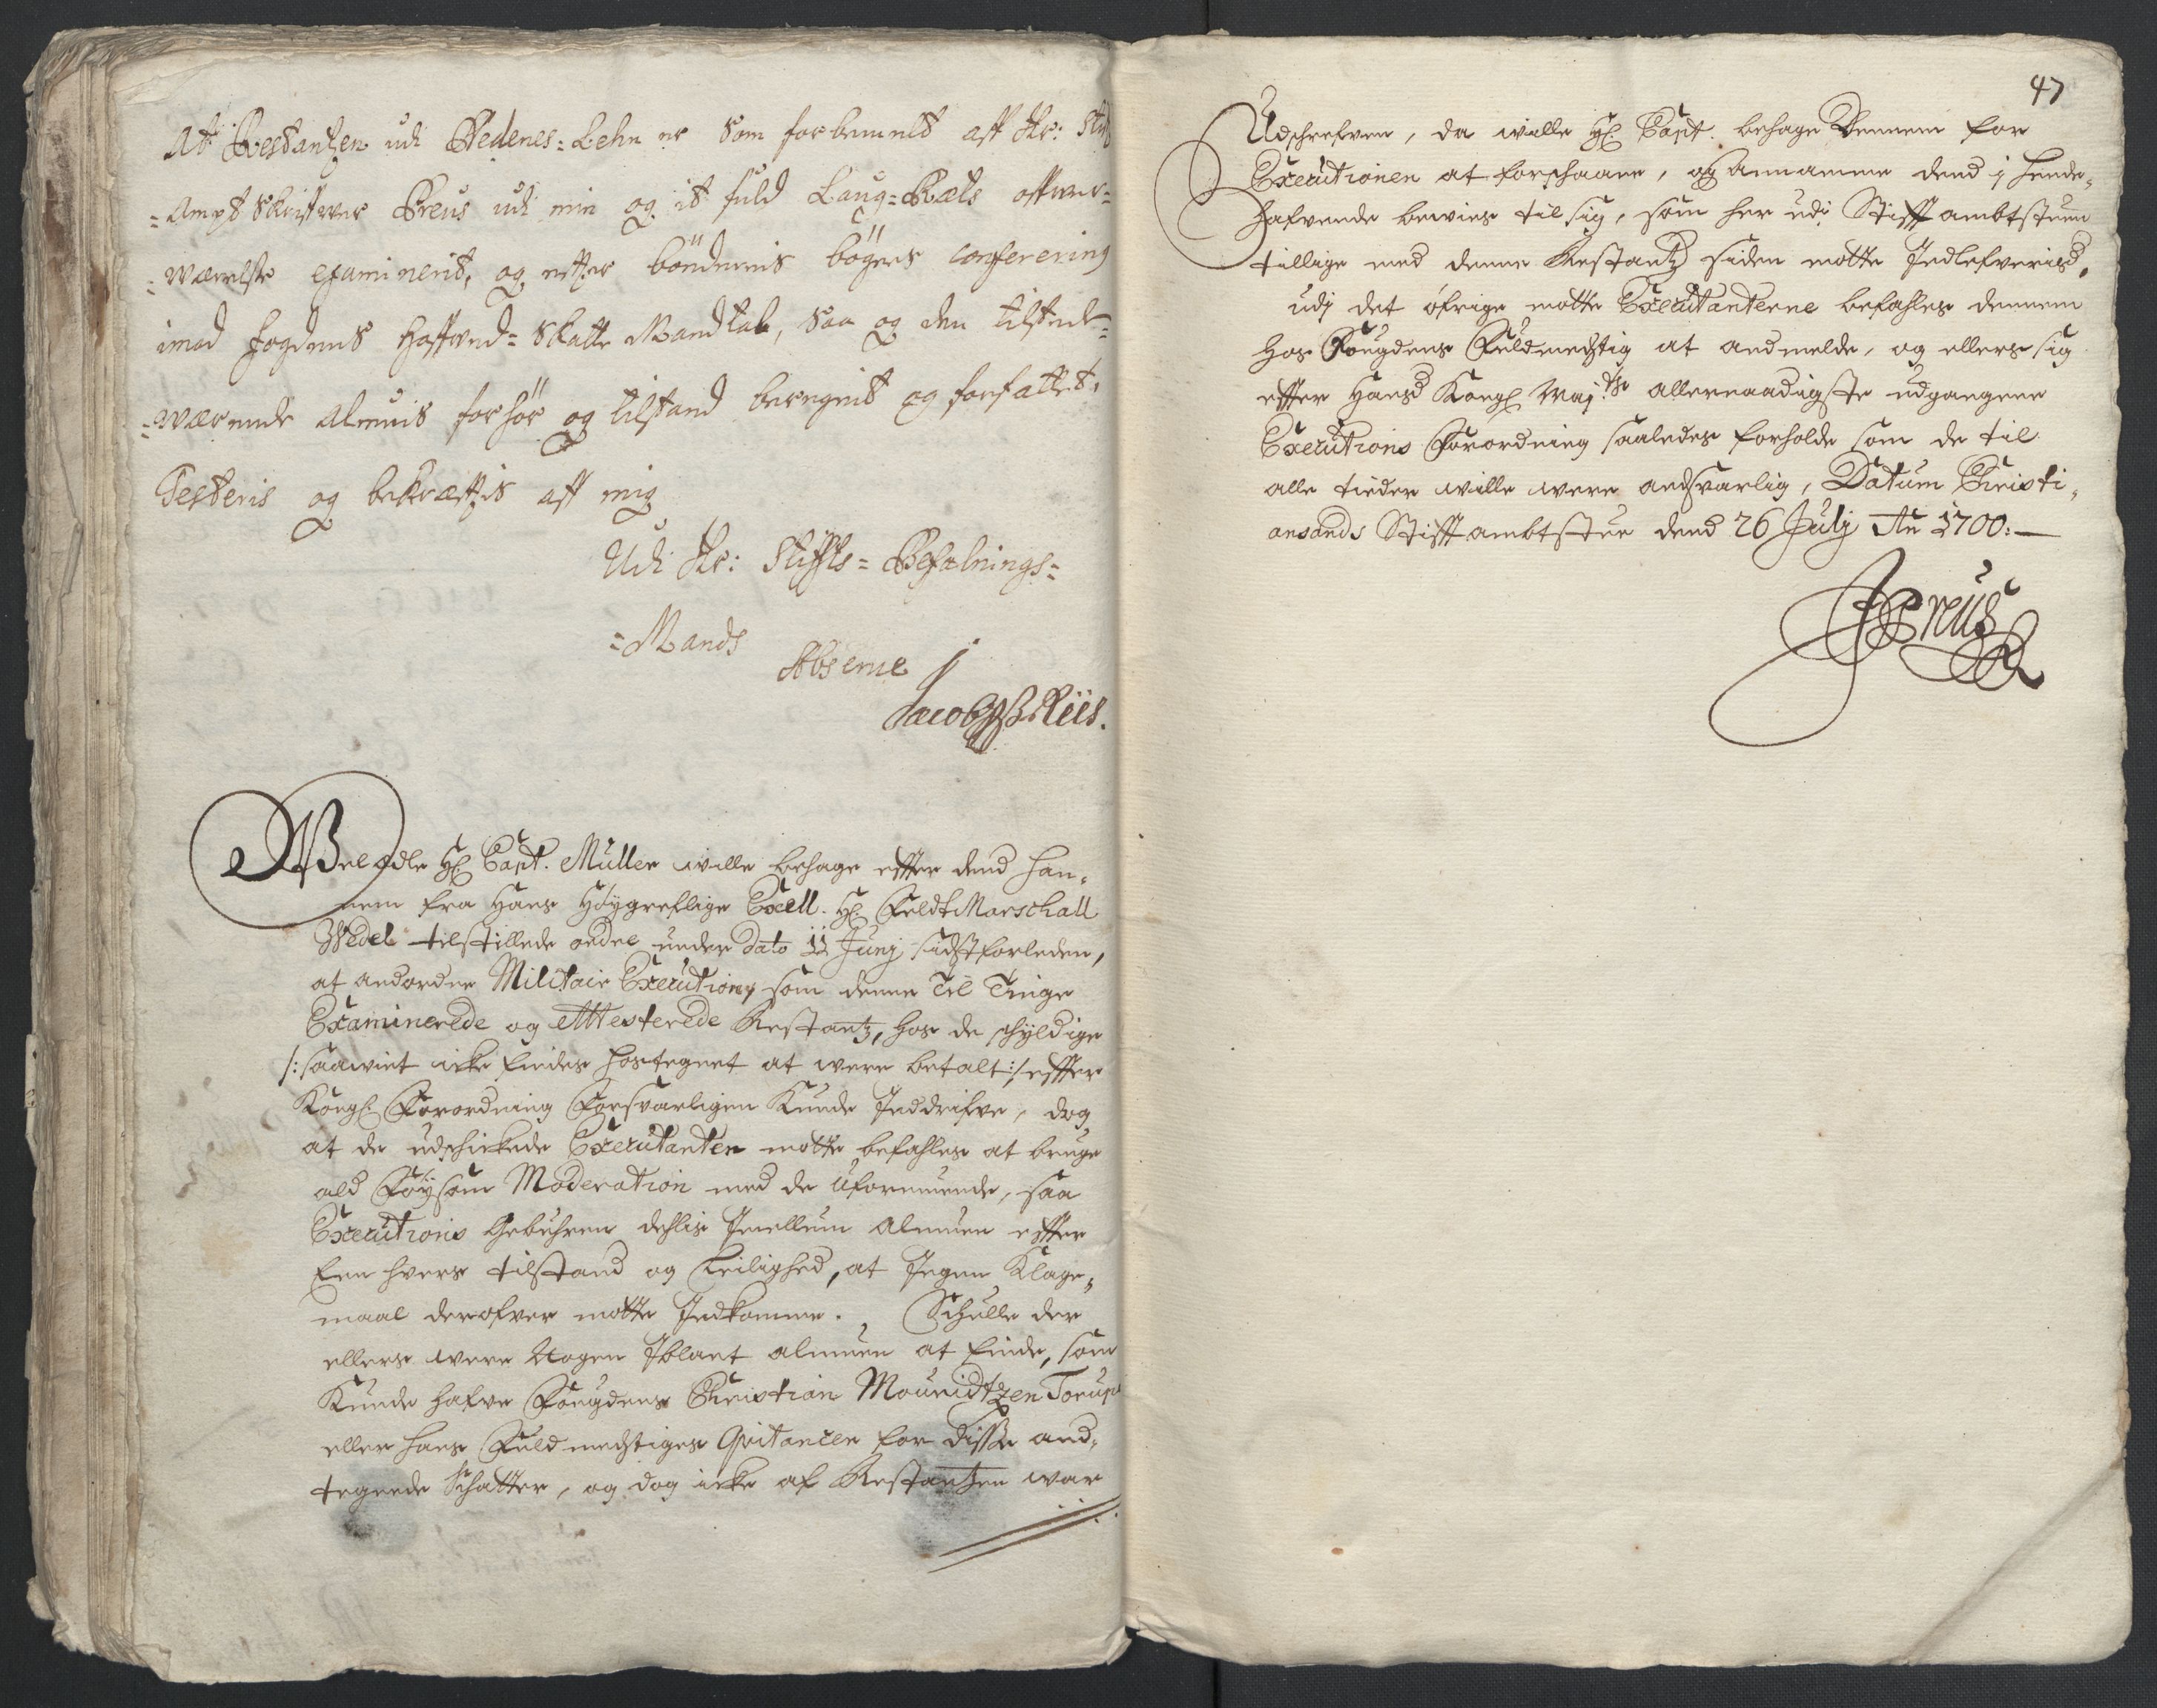 At Restantzen udi Nedenes=Lehn er Som forbemelt aff Hr: Stifft
=Amptskrifwer Preus udi min og it fuld Laug=Rætts offwer=
=wærelse examinerit, og efter böndernis bögers conferering
imod fogdens Hoffwed=Skatte Mandtal, Saa og den tilstede=
=wærende almuis forhör og tilstand beregnit og forfattet,
Testeris og bekræfftis aff mig
Udi Hr: Stiffts=Befalnings=
=Mands Absence
Jacob Riis.
Wel Edle Hr Capt. Müller wille behage effter dend han,
nem fra Hans Höygreflige Excell. Hr FeldtMarschall
Wedel tilstillede ordre under dato 11 Junj sidstforleden,
at anordne Militair Execution, som denne Til Tinge
Examinerede og Attesterede Restantz, hos de schyldige
/:saawiet icke findes hostegnet at were betalt:/ effter
Kongl. Forordning Forsvarligen Kunde Inddrifve, dog
at de udschickede Executanter motte befahles at bruge
ald Föysom Moderation med de Uformuende, saa
Executions Gebuhren dehlis Imellum Almuen effter
Een hvers tilstand og Leilighed, at Ingen Klage,
maal derofver motte Indkomme. Schulle der
ellers were Nogen Iblant almuen at finde, som
Kunde hafve Fougdens Christian Mouridtzen Torup
eller hans Fuldmechtiges Qvitancer for disse and,
tegnede Schatter, og dog icke af Restantzen war
47
Udschrefven, da wille Hr Capt. behage dennem for
Executionen at forschaane, og annamme dend i hende,
hafvende bewies til sig, som her udi Stifftambtstuen
tillige med denne Restantz siden motte Indlefveris,
udj det öfrige motte Executanterne befahles dennem
hos Fougdens Fuldmechtig at andmelde, og ellers sig
effter Hans Kongl Maj:ts allernaadigste udgangene
Executions Forordning saaledes forholde som de til
alle tieder wille were andsvarlig, Datum Christi,
ansands Stifftambtstue dend 26 Julij Ao 1700:—
JPreus